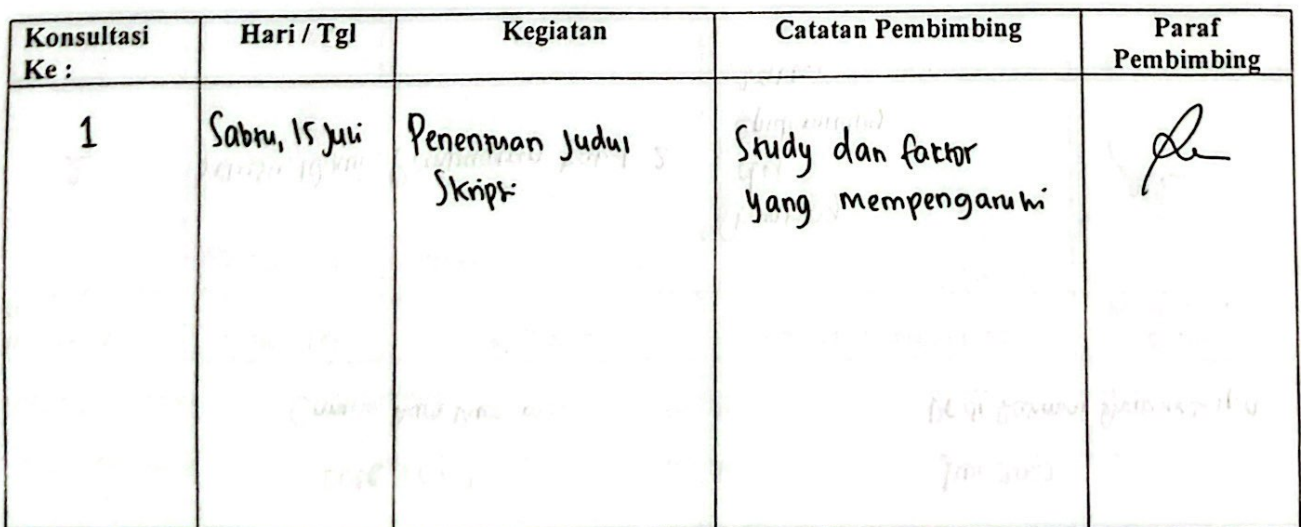 Konsultasi Ke :
Hari / Tgl
Kegiatan
Catatan Pembimbing
Paraf Pembimbing
1
Sabtu, 15 Juli
Penentuan Judul
Skripsi
Study dan faktor
yang mempengaruhi